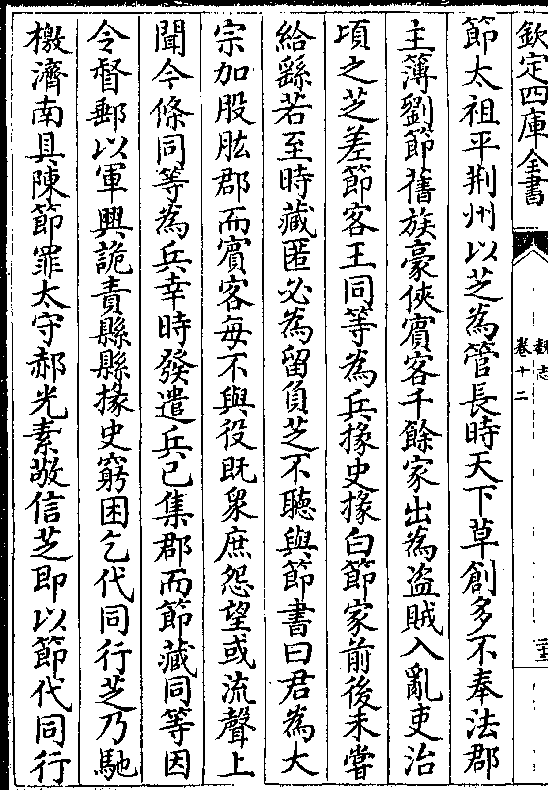 欽定四庫全書
魏志
卷十二
節太祖平荆州以芝為管長時天下草創多不奉法郡
主簿劉節舊族豪俠賓客千餘家出為盗賊入亂吏治
頃之芝差節客王同等為兵掾史掾白節家前後未嘗
給繇若至時藏匿必為留負芝不聽與節書曰君為大
宗加股肱郡而賓客每不與役既衆庶怨望或流聲上
聞今條同等為兵幸時發遣兵已集郡而節藏同等因
令督郵以軍興詭責縣縣掾史窮困乞代同行芝乃馳
檄濟南具陳節罪太守郝光素敬信芝即以節代同行